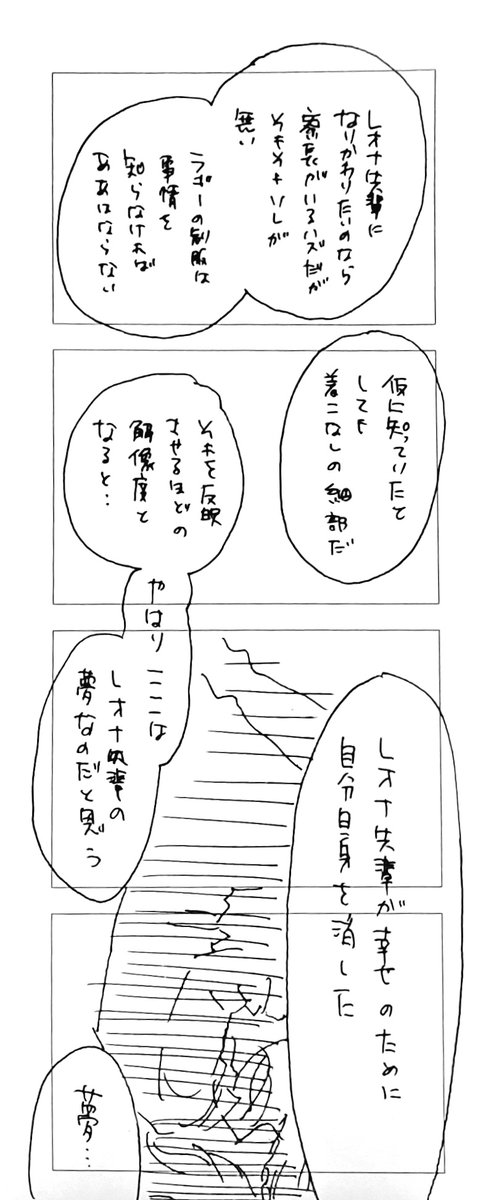 レオナ先輩に
なりかわりたいのなら
家長がいるハズだが
そもそもソレが
無い
ラギーの制服は
事情を
知らなければ
ああはならない
仮に知っていたと
しても
着こなしの細部だ
それを反映
させるほどの
解像度と
なると…
やはりここは
レオナ先輩の
夢なのだと思う
レオナ先輩が幸せのために
自分自身を消した
夢…